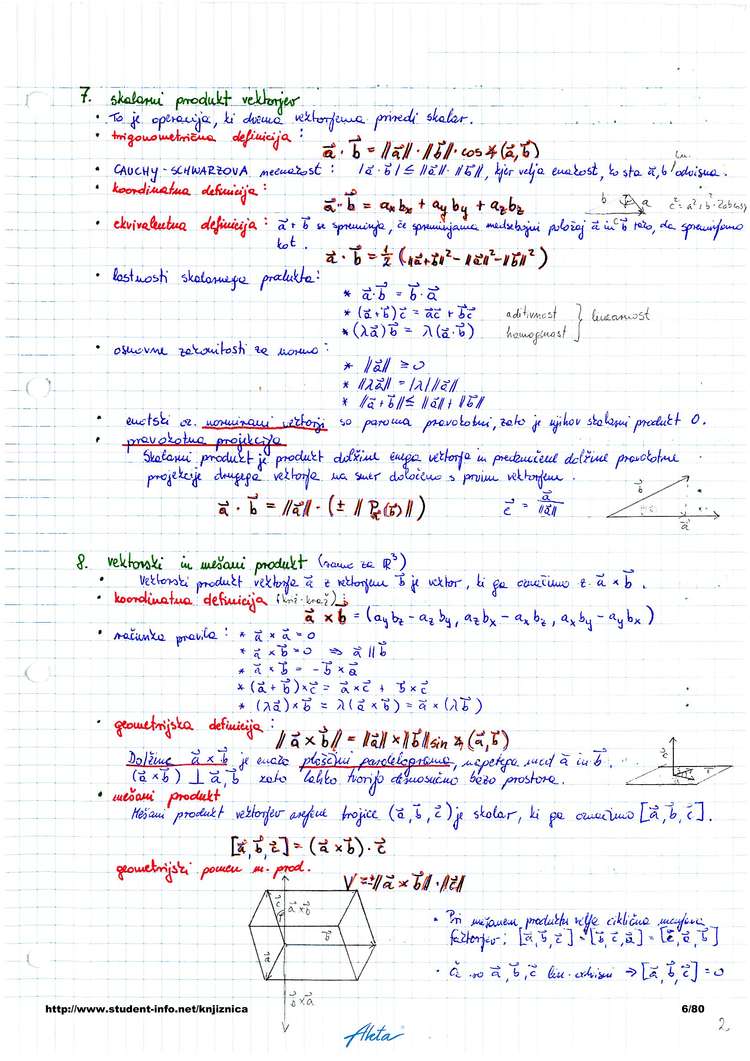 7. skalarni produkt vektorjev
• To je operacija, ki dvema vektorjema priredi skalar.
• trigonometrična definicija:
a⃗ · b⃗ = ||a⃗|| · ||b⃗|| · cos ∢(a⃗, b⃗)
• CAUCHY-SCHWARZOVA neenakost: |a⃗ · b⃗| ≤ ||a⃗|| · ||b⃗||, kjer velja enakost, ko sta a⃗, b⃗ lin. odvisna.
• koordinatna definicija:
a⃗ · b⃗ = aₓbₓ + a_y b_y + a_z b_z
b a c
c² = a² + b² - 2ab cos γ
• ekvivalentna definicija: a⃗ + b⃗ se spreminja, če spreminjamo medsebojni položaj a⃗ in b⃗ tako, da spreminjamo
kot.
a⃗ · b⃗ = ½ (||a⃗+b⃗||² - ||a⃗||² - ||b⃗||²)
• lastnosti skalarnega produkta:
* a⃗·b⃗ = b⃗·a⃗
* (a⃗+b⃗)c⃗ = a⃗c⃗ + b⃗c⃗ aditivnost
* (λa⃗)b⃗ = λ(a⃗·b⃗) homogenost } linearnost
• osnovne zakonitosti za normo:
* ||a⃗|| ≥ 0
* ||λa⃗|| = |λ| ||a⃗||
* ||a⃗+b⃗|| ≤ ||a⃗|| + ||b⃗||
• enotski oz. normirani vektorji so paroma pravokotni, zato je njihov skalarni produkt 0.
• pravokotna projekcija
Skalarni produkt je produkt dolžine enega vektorja in predznačene dolžine pravokotne
projekcije drugega vektorja na smer določeno s prvim vektorjem.
a⃗ · b⃗ = ||a⃗|| · (± ||Pₐ(b⃗)||)
e⃗ = a⃗ / ||a⃗||
b⃗
a⃗
8. vektorski in mešani produkt (samo za ℝ³)
• Vektorski produkt vektorja a⃗ z vektorjem b⃗ je vektor, ki ga označimo z a⃗ × b⃗.
• koordinatna definicija (križ-kraž):
a⃗ × b⃗ = (a_y b_z - a_z b_y, a_z bₓ - aₓ b_z, aₓ b_y - a_y bₓ)
• računska pravila: * a⃗ × a⃗ = 0
* a⃗ × b⃗ = 0 ⇒ a⃗ || b⃗
* a⃗ × b⃗ = - b⃗ × a⃗
* (a⃗ + b⃗) × c⃗ = a⃗ × c⃗ + b⃗ × c⃗
* (λa⃗) × b⃗ = λ(a⃗ × b⃗) = a⃗ × (λb⃗)
• geometrijska definicija:
||a⃗ × b⃗|| = ||a⃗|| × ||b⃗|| sin ∢(a⃗, b⃗)
Dolžina a⃗ × b⃗ je enaka ploščini paralelograma, napetega med a⃗ in b⃗.
(a⃗ × b⃗) ⊥ a⃗, b⃗ zato lahko tvorijo desnosučno bazo prostora.
• mešani produkt
Mešani produkt vektorjev urejene trojice (a⃗, b⃗, c⃗) je skalar, ki ga označimo [a⃗, b⃗, c⃗].
[a⃗, b⃗, c⃗] = (a⃗ × b⃗) · c⃗
geometrijski pomen m. prod.
V = ± ||a⃗ × b⃗|| · ||c⃗||
a⃗ × b⃗
c⃗
b⃗
a⃗
b⃗ × a⃗
• Pri mešanem produktu velja ciklična menjava
faktorjev: [a⃗, b⃗, c⃗] = [b⃗, c⃗, a⃗] = [c⃗, a⃗, b⃗]
• Če so a⃗, b⃗, c⃗ lin. odvisni ⇒ [a⃗, b⃗, c⃗] = 0
http://www.student-info.net/knjiznica
6/80
2.